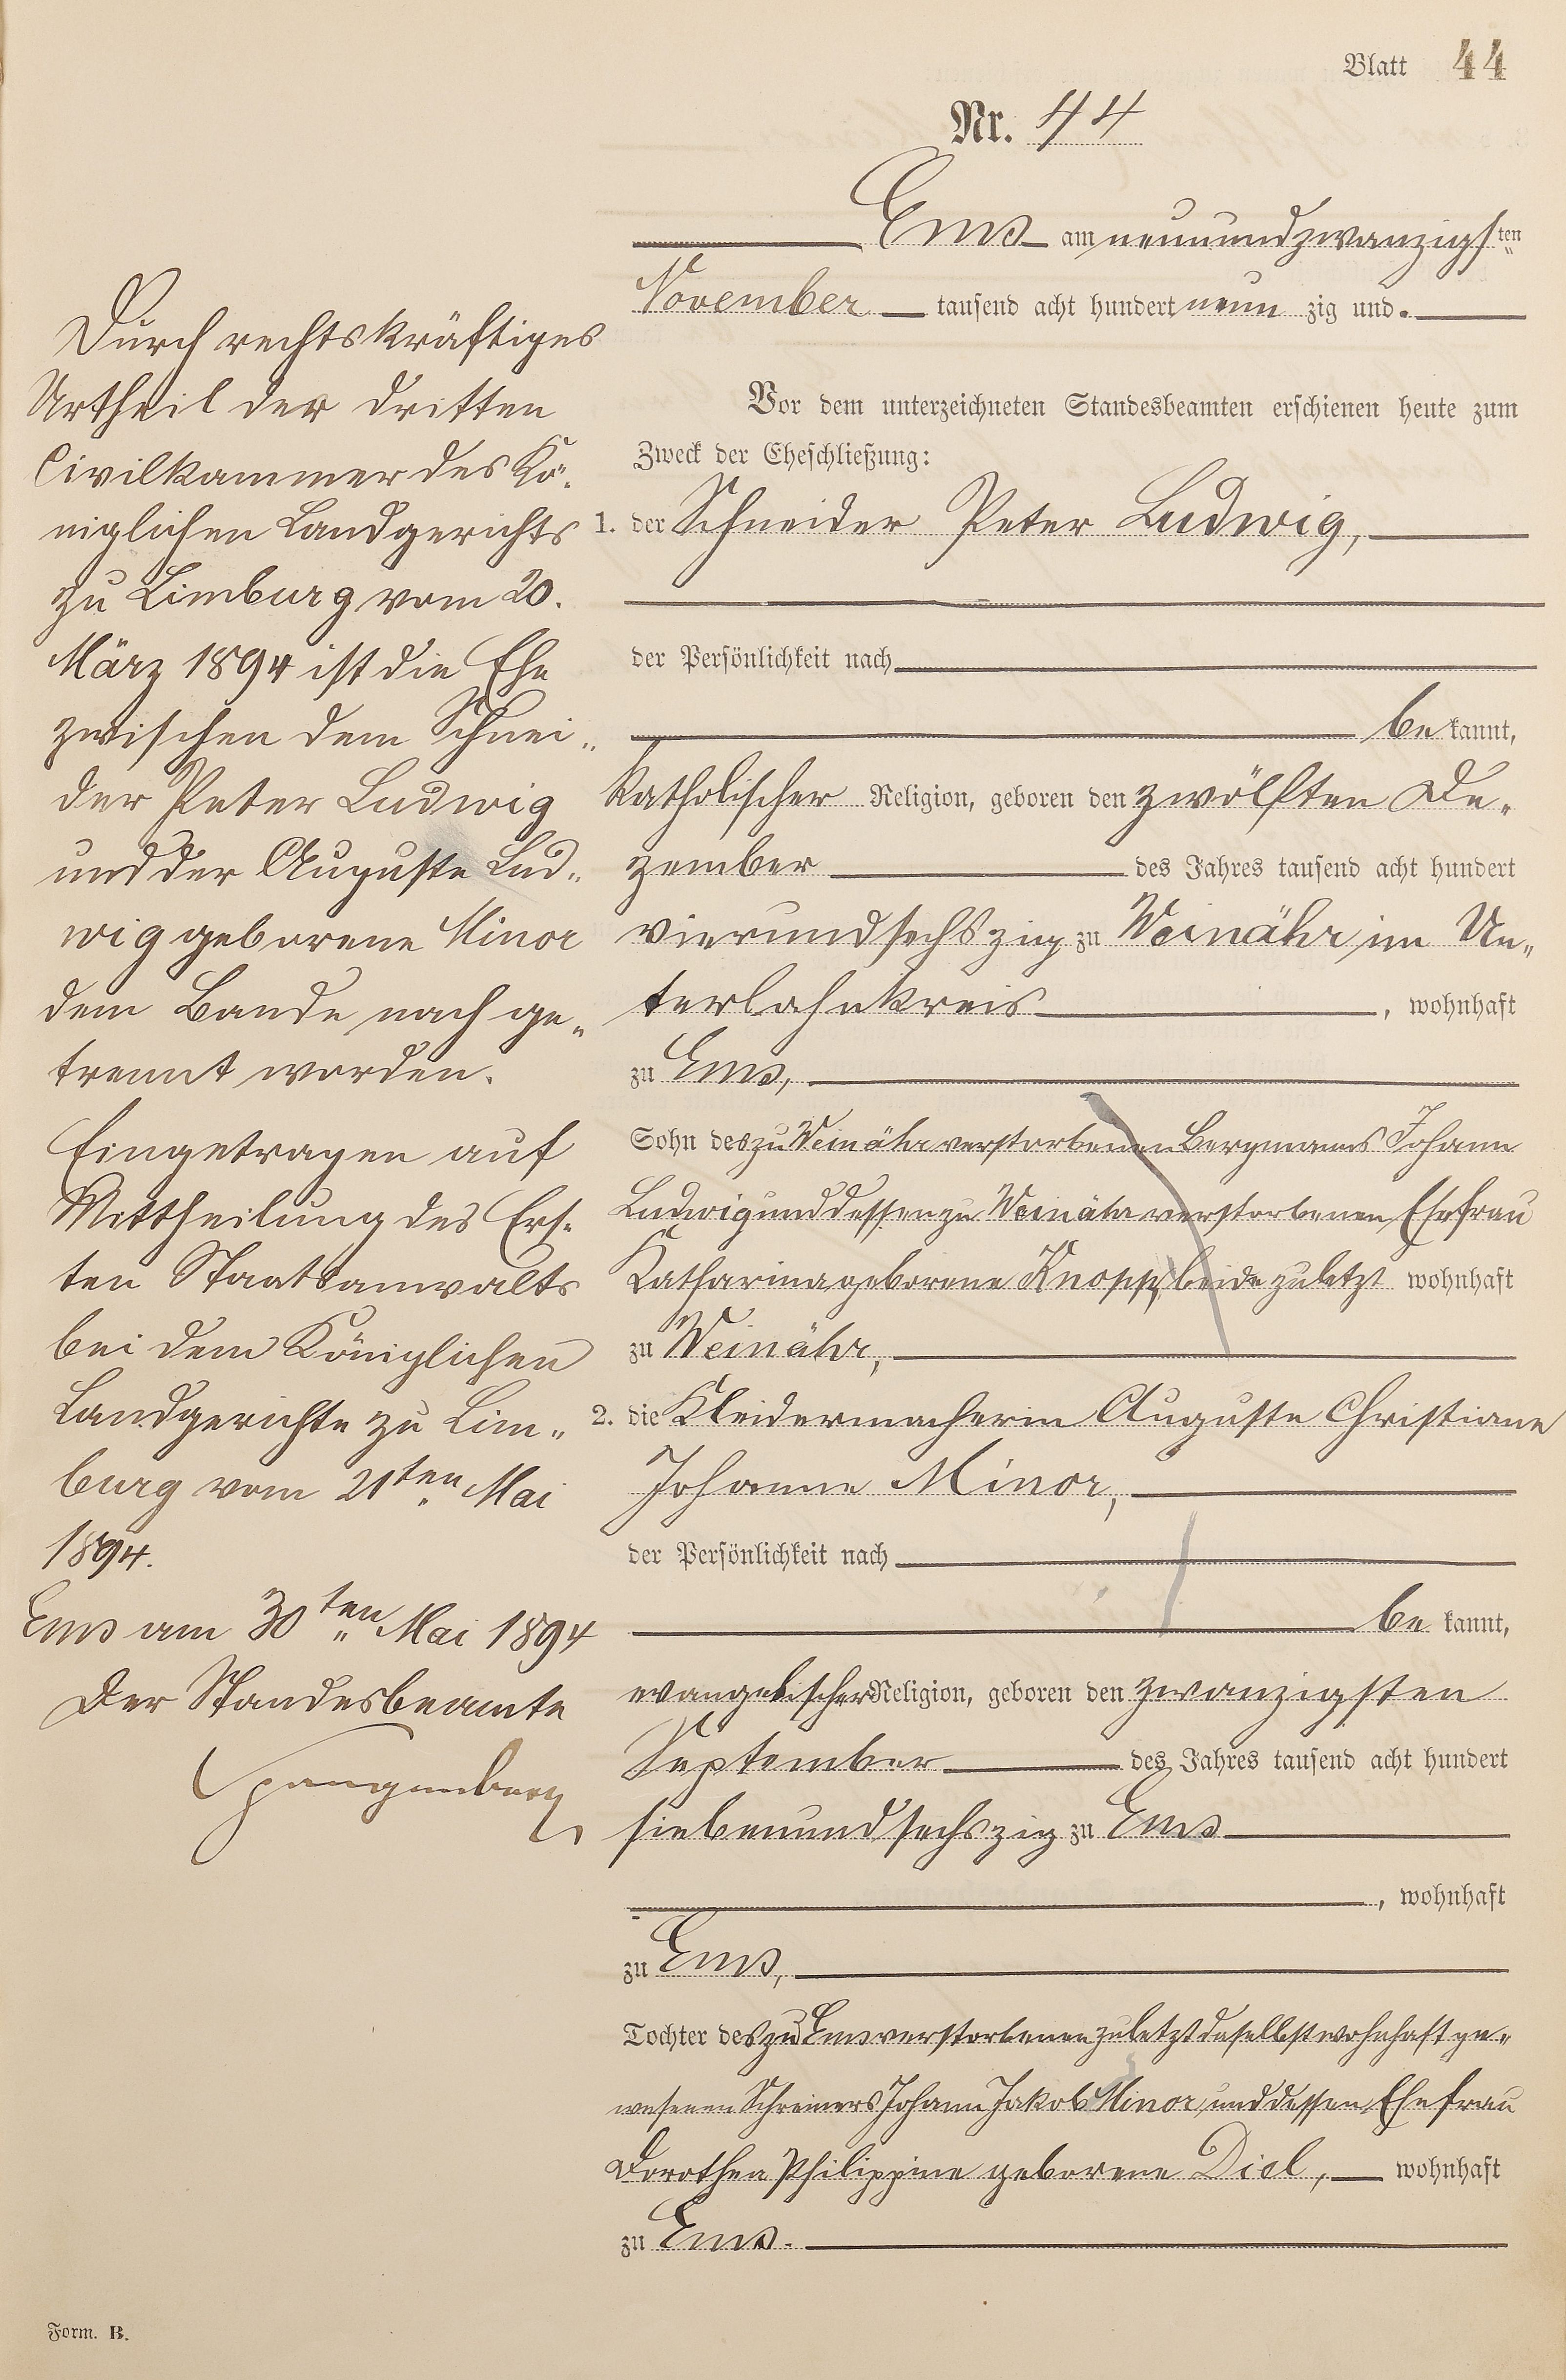 Blatt 44
Nr. 44
Ems am neunundzwanzigsten
November tausend acht hundert neunzig und.
Vor dem unterzeichneten Standesbeamten erschienen heute zum
Zweck der Eheschließung:
1. der Schneider Peter Ludwig,
der Persönlichkeit nach
bekannt,
katholischer Religion, geboren den zwölften De-
zember des Jahres tausend acht hundert
vierundsechszig zu Weinähr im Un-
terlahnkreis, wohnhaft
zu Ems,
Sohn des zu Weinähr verstorbenen Bergmanns Johann
Ludwig und dessen zu Weinähr verstorbenen Ehefrau
Katharina geborene Knopp, beide zuletzt wohnhaft
zu Weinähr,
2. die Kleidermacherin Auguste Christiane
Johanne Minor,
der Persönlichkeit nach
bekannt,
evangelischer Religion, geboren den zwanzigsten
September des Jahres tausend acht hundert
siebenundsechszig zu Ems
, wohnhaft
zu Ems,
Tochter des zu Ems verstorbenen zuletzt daselbst wohnhaft ge-
wesenen Schreiners Johann Jakob Minor, und dessen Ehefrau
Dorothea Philippine geborene Diel, wohnhaft
zu Ems.
Durch rechtskräftiges
Urtheil der dritten
Civilkammer des Kö-
niglichen Landgerichts
zu Limburg vom 20.
März 1894 ist die Ehe
zwischen dem Schnei-
der Peter Ludwig
und der Auguste Lud-
wig geborene Minor
dem Bande nach ge-
trennt worden.
Eingetragen auf
Mittheilung des Ers-
ten Staatsanwalts
bei dem Königlichen
Landgerichte zu Lim-
burg vom 21ten Mai
1894.
Ems am 30ten Mai 1894
Der Standesbeamte
Spangenberg
Form. B.